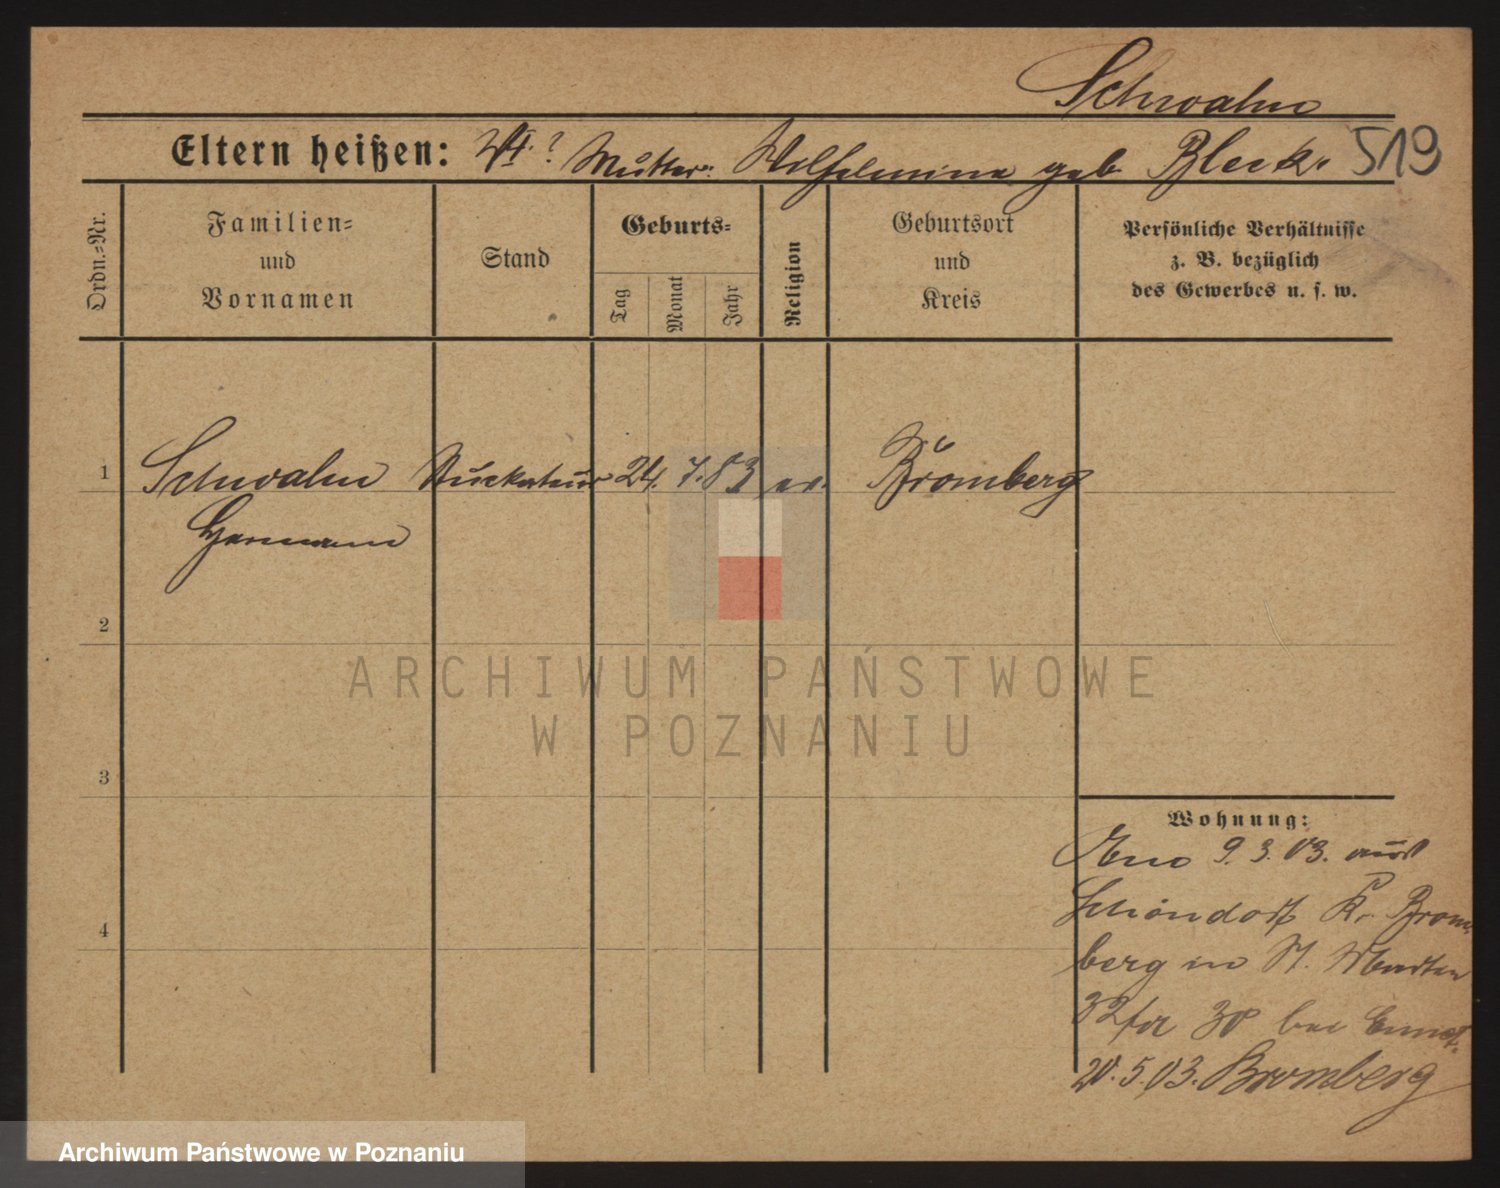 Schwalm
Eltern heißen: Vt. ? Mutter: Wilhelmine geb. Bleek. 519
Ordn.=Nr.
Familien=
und
Vornamen
Stand
Geburts=
Tag
Monat
Jahr
Religion
Geburtsort
und
Kreis
Persönliche Verhältnisse
z. B. bezüglich
des Gewerbes u. s. w.
1 Schwalm Stuckateur 24. 7. 83 ev. Bromberg
Hermann
2
3
4
Wohnung:
9. 3. 03. aus
Schöndorf Kr. Brom
berg in St. Martin
32 bei
20. 5. 03. Bromberg
ARCHIWUM PAŃSTWOWE
W POZNANIU
Archiwum Państwowe w Poznaniu